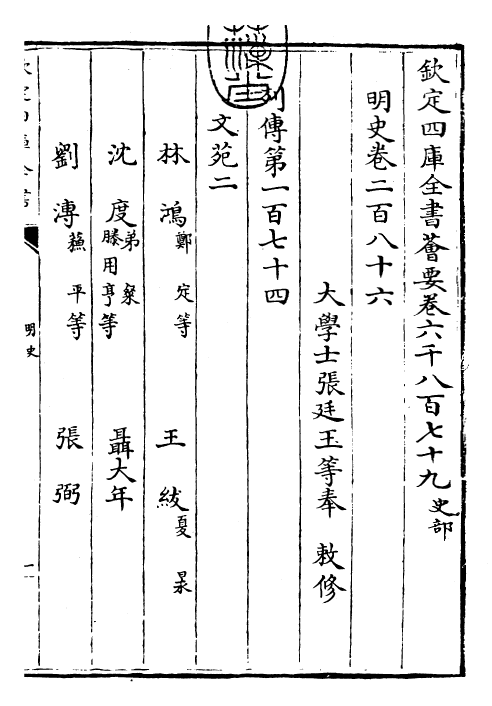 欽定四庫全書薈要卷六千八百七十九 史部
明史卷二百八十六
大學士張廷玉等奉 敕修
列傳第一百七十四
文苑二
林鴻 鄭定等 王紱 夏㫤
沈度 弟粲 滕用亨等 聶大年
劉溥 蘇平等 張弼
明史
一